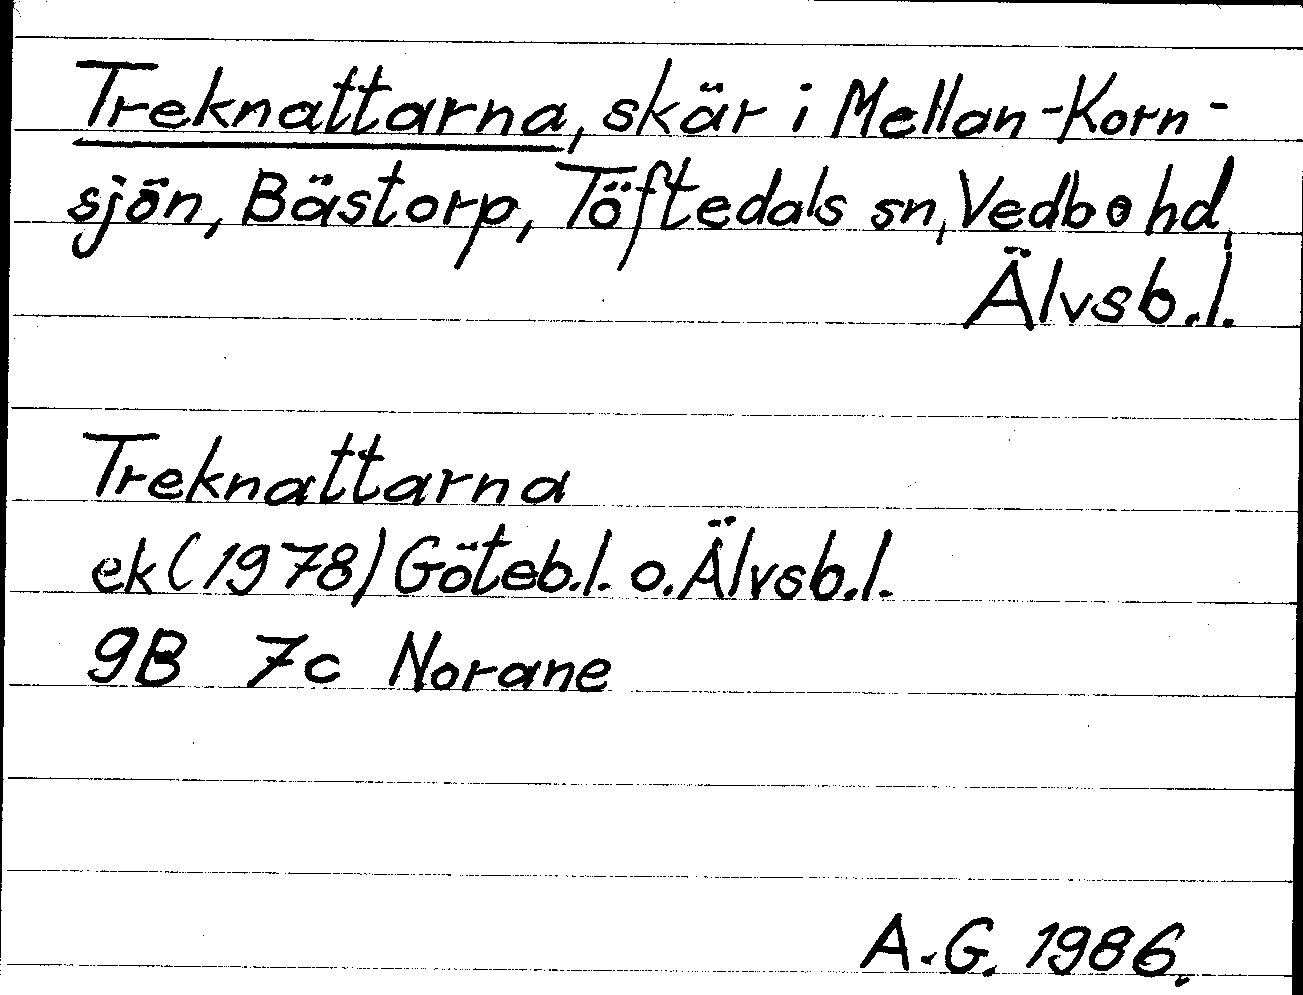 Treknattarna, skär i Mellan-Korn-
sjön, Bästorp, Töftedals sn, Vedbo hd,
Älvsb.l.
Treknattarna
ek (1978) Göteb.l. o. Älvsb.l.
9B 7c Norane
A.G. 1986.